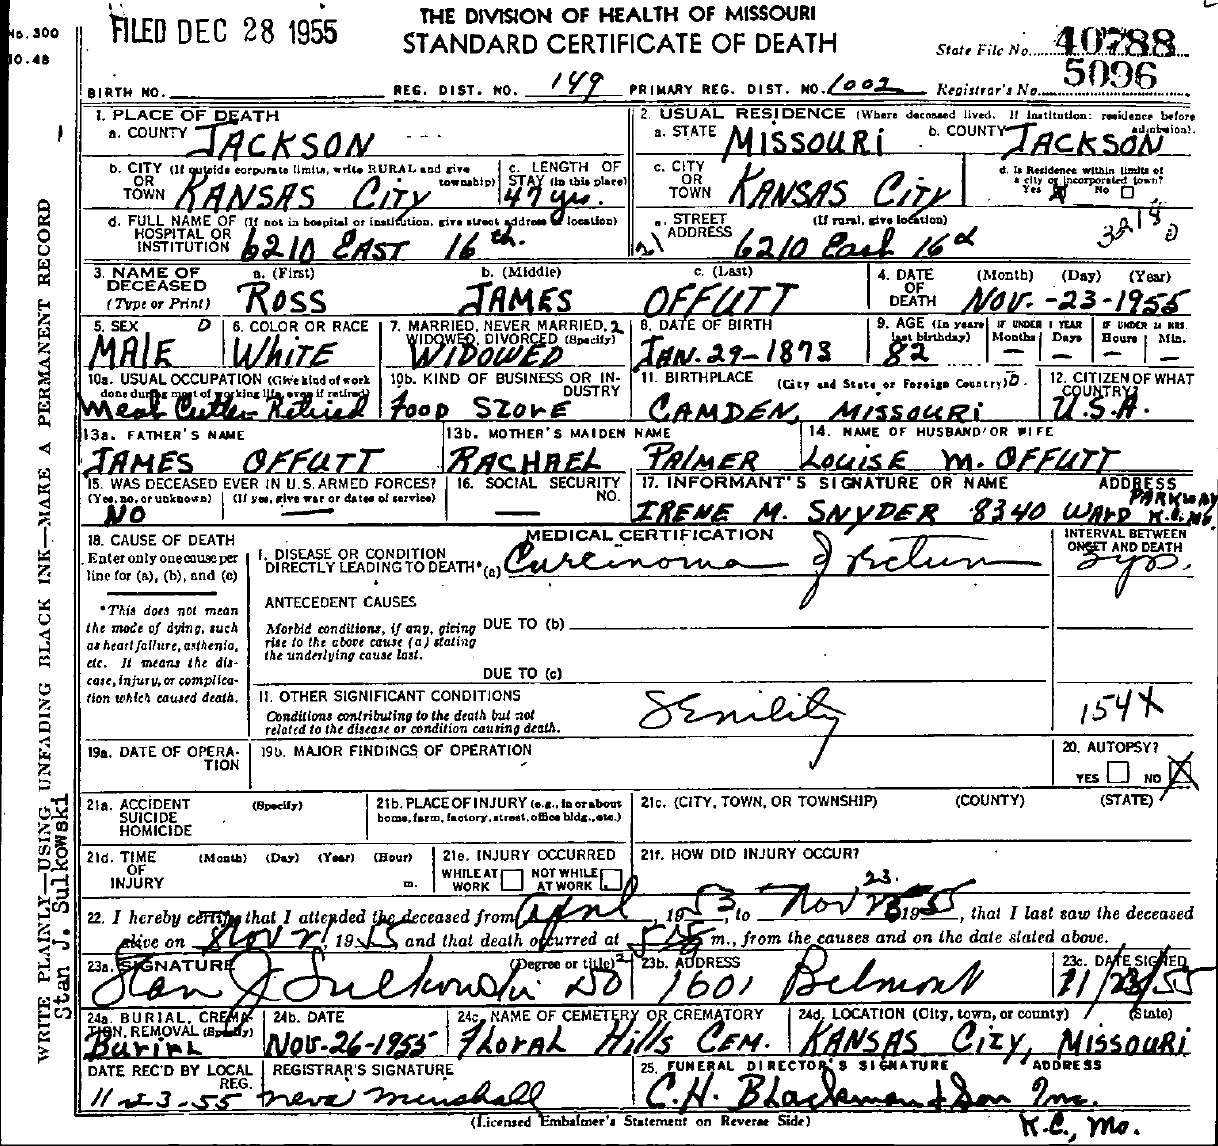 THE DIVISION OF HEALTH OF MISSOURI
FILED DEC 28 1955
STANDARD CERTIFICATE OF DEATH
No. 300
10.48
State File No. 40788
BIRTH NO. REG. DIST. NO. 149 PRIMARY REG. DIST. NO. 1002 Registrar's No. 5096
1. PLACE OF DEATH
a. COUNTY JACKSON
2. USUAL RESIDENCE (Where deceased lived. If institution: residence before admission).
a. STATE MISSOURI b. COUNTY JACKSON
b. CITY (If outside corporate limits, write RURAL and give township) OR TOWN KANSAS CITY
c. LENGTH OF STAY (in this place) 47 yrs.
c. CITY OR TOWN KANSAS CITY
d. Is Residence within limits of a city or incorporated town? Yes No
d. FULL NAME OF HOSPITAL OR INSTITUTION (If not in hospital or institution, give street address or location) 6210 EAST 16th.
e. STREET ADDRESS (If rural, give location) 6210 East 16th
3. NAME OF DECEASED (Type or Print)
a. (First) ROSS b. (Middle) JAMES c. (Last) OFFUTT
4. DATE OF DEATH (Month) (Day) (Year) NOV. -23-1955
5. SEX MALE
6. COLOR OR RACE WHITE
7. MARRIED, NEVER MARRIED, WIDOWED, DIVORCED (Specify) WIDOWED
8. DATE OF BIRTH JAN. 29-1873
9. AGE (In years last birthday) 82 IF UNDER 1 YEAR Months — Days — IF UNDER 24 HRS. Hours — Min. —
10a. USUAL OCCUPATION (Give kind of work done during most of working life, even if retired) Meat Cutter-Retired
10b. KIND OF BUSINESS OR INDUSTRY FOOD STORE
11. BIRTHPLACE (City and State or Foreign Country) CAMDEN, MISSOURI
12. CITIZEN OF WHAT COUNTRY? U.S.A.
13a. FATHER'S NAME JAMES OFFUTT
13b. MOTHER'S MAIDEN NAME RACHAEL PALMER
14. NAME OF HUSBAND OR WIFE LOUISE M. OFFUTT
15. WAS DECEASED EVER IN U.S. ARMED FORCES? (Yes, no, or unknown) (If yes, give war or dates of service) NO —
16. SOCIAL SECURITY NO. —
17. INFORMANT'S SIGNATURE OR NAME ADDRESS IRENE M. SNYDER 8340 WARD PARKWAY K.C. Mo.
18. CAUSE OF DEATH
Enter only one cause per line for (a), (b), and (c)
MEDICAL CERTIFICATION
INTERVAL BETWEEN ONSET AND DEATH
I. DISEASE OR CONDITION DIRECTLY LEADING TO DEATH* (a) Carcinoma of rectum
*This does not mean the mode of dying, such as heart failure, asthenia, etc. It means the disease, injury, or complication which caused death.
ANTECEDENT CAUSES
Morbid conditions, if any, giving rise to the above cause (a) stating the underlying cause last.
DUE TO (b)
DUE TO (c)
II. OTHER SIGNIFICANT CONDITIONS
Conditions contributing to the death but not related to the disease or condition causing death.
Senility
154X
19a. DATE OF OPERATION
19b. MAJOR FINDINGS OF OPERATION
20. AUTOPSY?
YES NO
21a. ACCIDENT SUICIDE HOMICIDE (Specify)
21b. PLACE OF INJURY (e.g., in or about home, farm, factory, street, office bldg., etc.)
21c. (CITY, TOWN, OR TOWNSHIP) (COUNTY) (STATE)
21d. TIME OF INJURY (Month) (Day) (Year) (Hour) m.
21e. INJURY OCCURRED
WHILE AT WORK NOT WHILE AT WORK
21f. HOW DID INJURY OCCUR?
22. I hereby certify that I attended the deceased from April, 1953, to Nov 23 1955, that I last saw the deceased
alive on Nov 21, 1955 and that death occurred at m., from the causes and on the date stated above.
23a. SIGNATURE (Degree or title) Stan J Sulkowski DO
23b. ADDRESS 1601 Belmont
23c. DATE SIGNED 11/23/55
24a. BURIAL, CREMATION, REMOVAL (Specify) BURIAL
24b. DATE NOV-26-1955
24c. NAME OF CEMETERY OR CREMATORY FLORAL HILLS CEM.
24d. LOCATION (City, town, or county) (State) KANSAS CITY, MISSOURI
DATE REC'D BY LOCAL REG. 11-23-55
REGISTRAR'S SIGNATURE Neva Minshall
25. FUNERAL DIRECTOR'S SIGNATURE ADDRESS C.H. Blackman & Son Inc.
K.C., Mo.
(Licensed Embalmer's Statement on Reverse Side)
WRITE PLAINLY—USING UNFADING BLACK INK—MAKE A PERMANENT RECORD
Stan J. Sulkowski